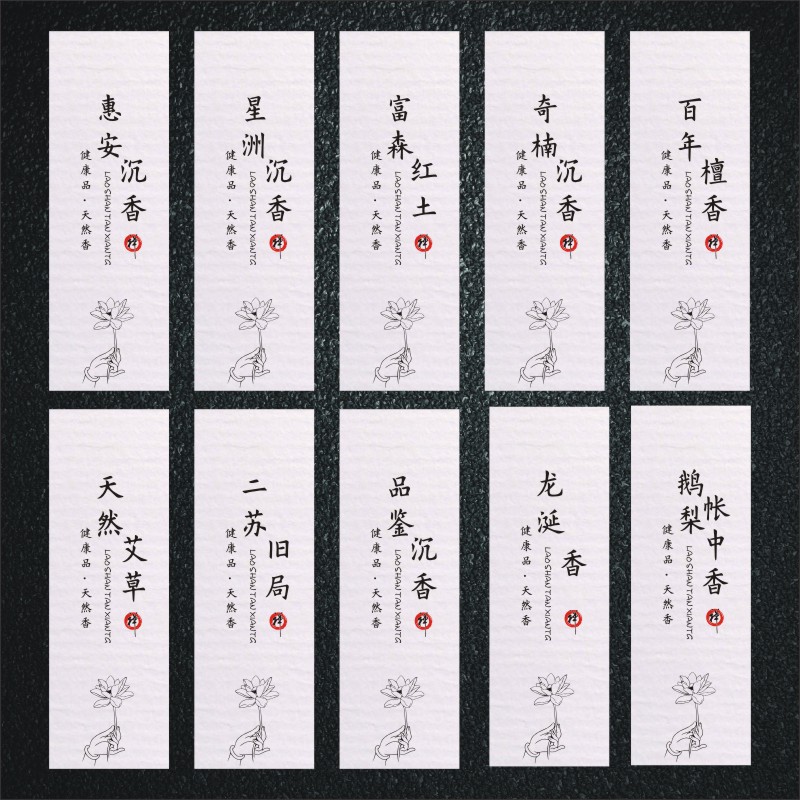 惠安沉香
健康品·天然香
LAO SHAN TAN XIANTG
禅
星洲沉香
健康品·天然香
LAO SHAN TAN XIANTG
禅
富森红土
健康品·天然香
LAO SHAN TAN XIANTG
禅
奇楠沉香
健康品·天然香
LAO SHAN TAN XIANTG
禅
百年檀香
健康品·天然香
LAO SHAN TAN XIANTG
禅
天然艾草
健康品·天然香
LAO SHAN TAN XIANTG
禅
二苏旧局
健康品·天然香
LAO SHAN TAN XIANTG
禅
品鉴沉香
健康品·天然香
LAO SHAN TAN XIANTG
禅
龙涎香
健康品·天然香
LAO SHAN TAN XIANTG
禅
鹅梨帐中香
健康品·天然香
LAO SHAN TAN XIANTG
禅